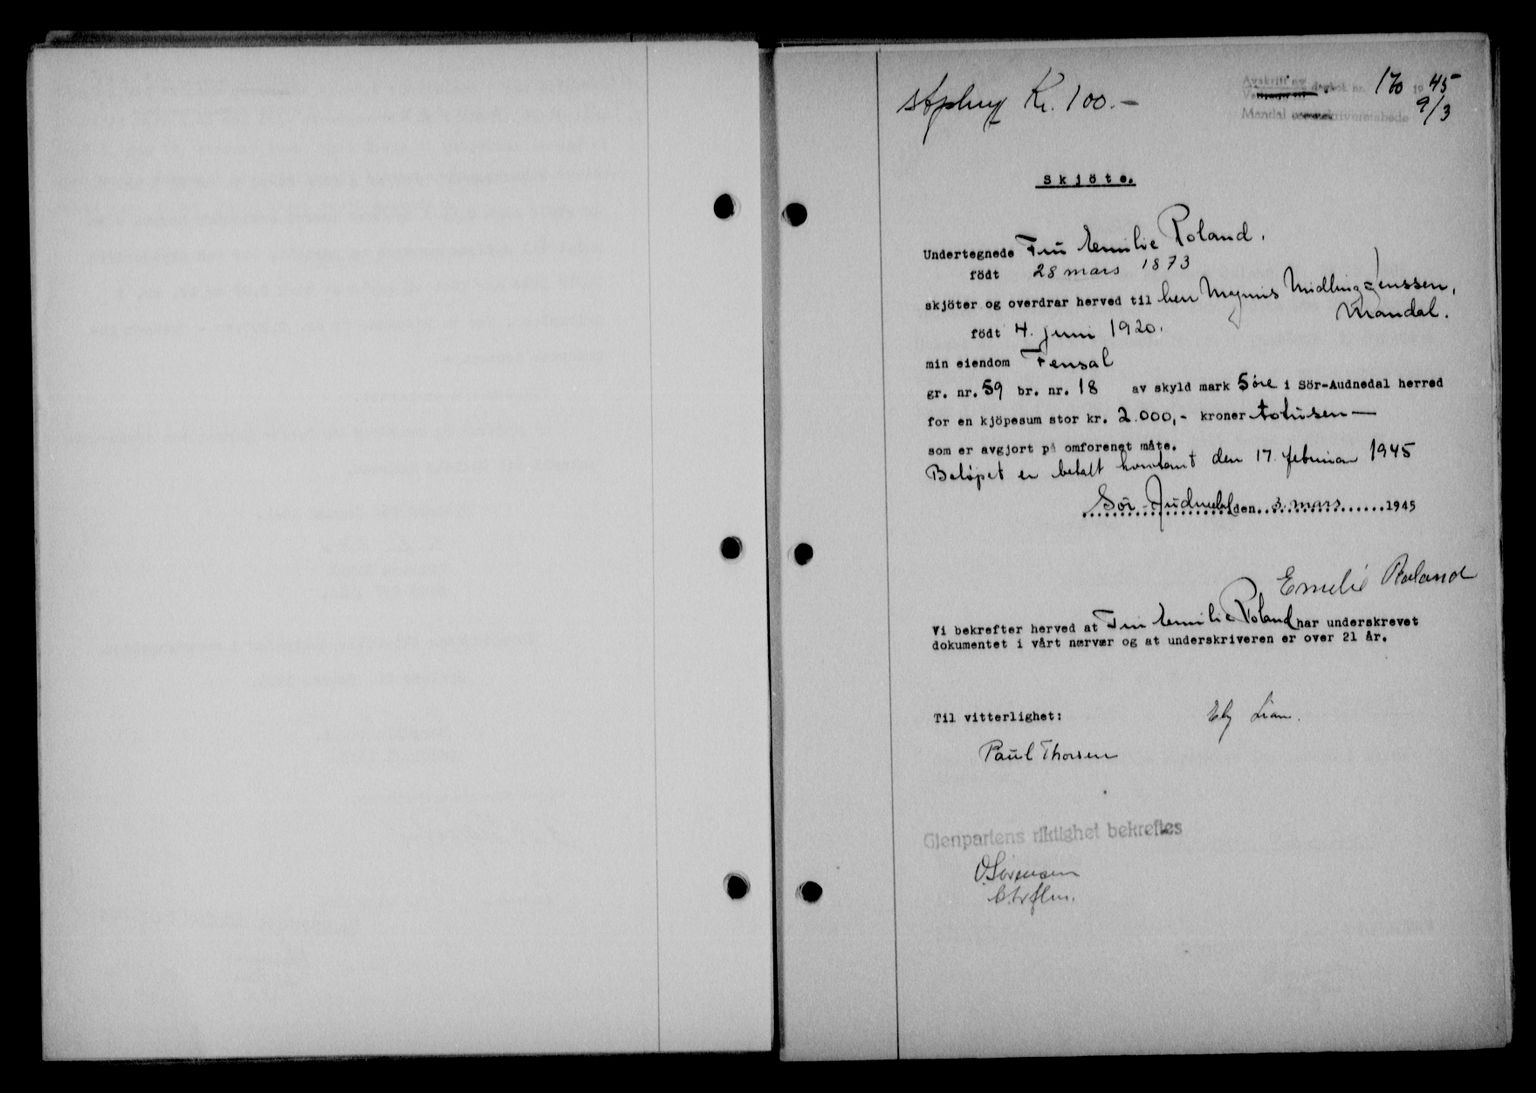 Kr. 100.-
Avskrift av
dagbok nr. 170 1945
Mandal sorenskriverembede 9/3
Skjöte.
Undertegnede Fru Emilie Roland.
födt 28 mars 1873
skjöter og overdrar herved til herr Magnus Midling-Jenssen,
Mandal.
födt 4. juni 1920.
min eiendom Fensal
gr. nr. 59 br. nr. 18 av skyld mark 5 öre i Sör-Audnedal herred
for en kjöpesum stor kr. 2.000,- kroner totusen —
som er avgjort på omforenet måte.
Beløpet er betalt kontant den 17. februar 1945
Sör-Audnedal den 3. mars 1945
Emilie Roland
Vi bekrefter herved at Fru Emilie Roland har underskrevet
dokumentet i vårt nærvær og at underskriveren er over 21 år.
Til vitterlighet:
Paul Thorsen
Gjenpartens riktighet bekreftes
O. Sörensen